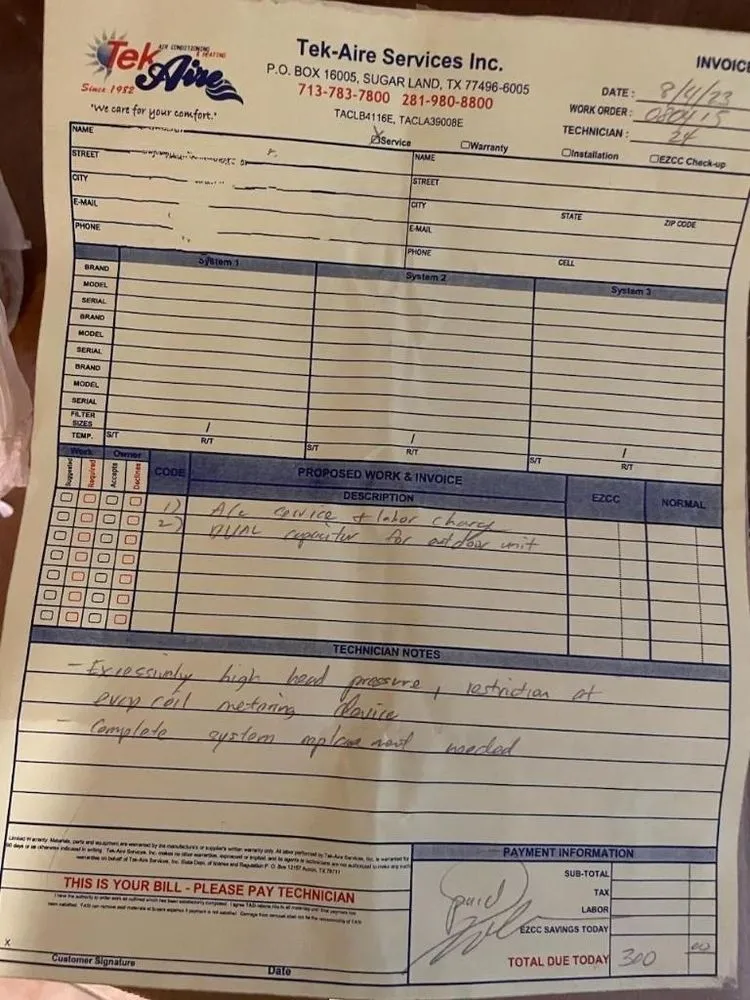 Tek Aire
AIR CONDITIONING & HEATING
Since 1982
"We care for your comfort."
Tek-Aire Services Inc.
P.O. BOX 16005, SUGAR LAND, TX 77496-6005
713-783-7800 281-980-8800
TACLB4116E, TACLA39008E
INVOICE
DATE: 8/4/23
WORK ORDER: 080415
TECHNICIAN: 24
Service Warranty Installation EZCC Check-up
NAME
STREET
CITY
E-MAIL
PHONE
NAME
STREET
CITY STATE ZIP CODE
E-MAIL
PHONE CELL
System 1 System 2 System 3
BRAND
MODEL
SERIAL
BRAND
MODEL
SERIAL
BRAND
MODEL
SERIAL
FILTER SIZES
TEMP. S/T / R/T S/T / R/T S/T / R/T
Work Owner
Suggested Required Accepts Declines
CODE PROPOSED WORK & INVOICE
DESCRIPTION EZCC NORMAL
1) A/C service + labor charge
2) DUAL capacitor for outdoor unit
TECHNICIAN NOTES
- Excessively high head pressure, restriction at
evap coil metering device
- Complete system replacement needed
Limited Warranty: Materials, parts and equipment are warranted by the manufacturer's or supplier's written warranty only. All labor performed by Tek-Aire Services, Inc. is warranted for
THIS IS YOUR BILL - PLEASE PAY TECHNICIAN
X
Customer Signature Date
PAYMENT INFORMATION
SUB-TOTAL
TAX
LABOR
EZCC SAVINGS TODAY
TOTAL DUE TODAY 300 00
paid